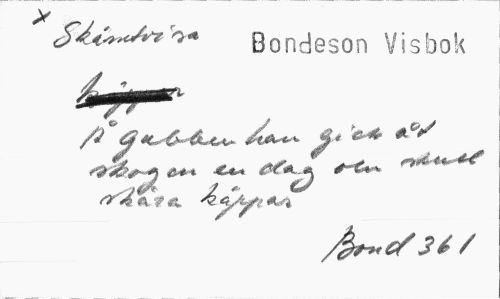 x Skämtvisa
Bondeson Visbok
käppar
Å gubben han gick åt
skogen en dag och skull
skära käppar
Bond 361